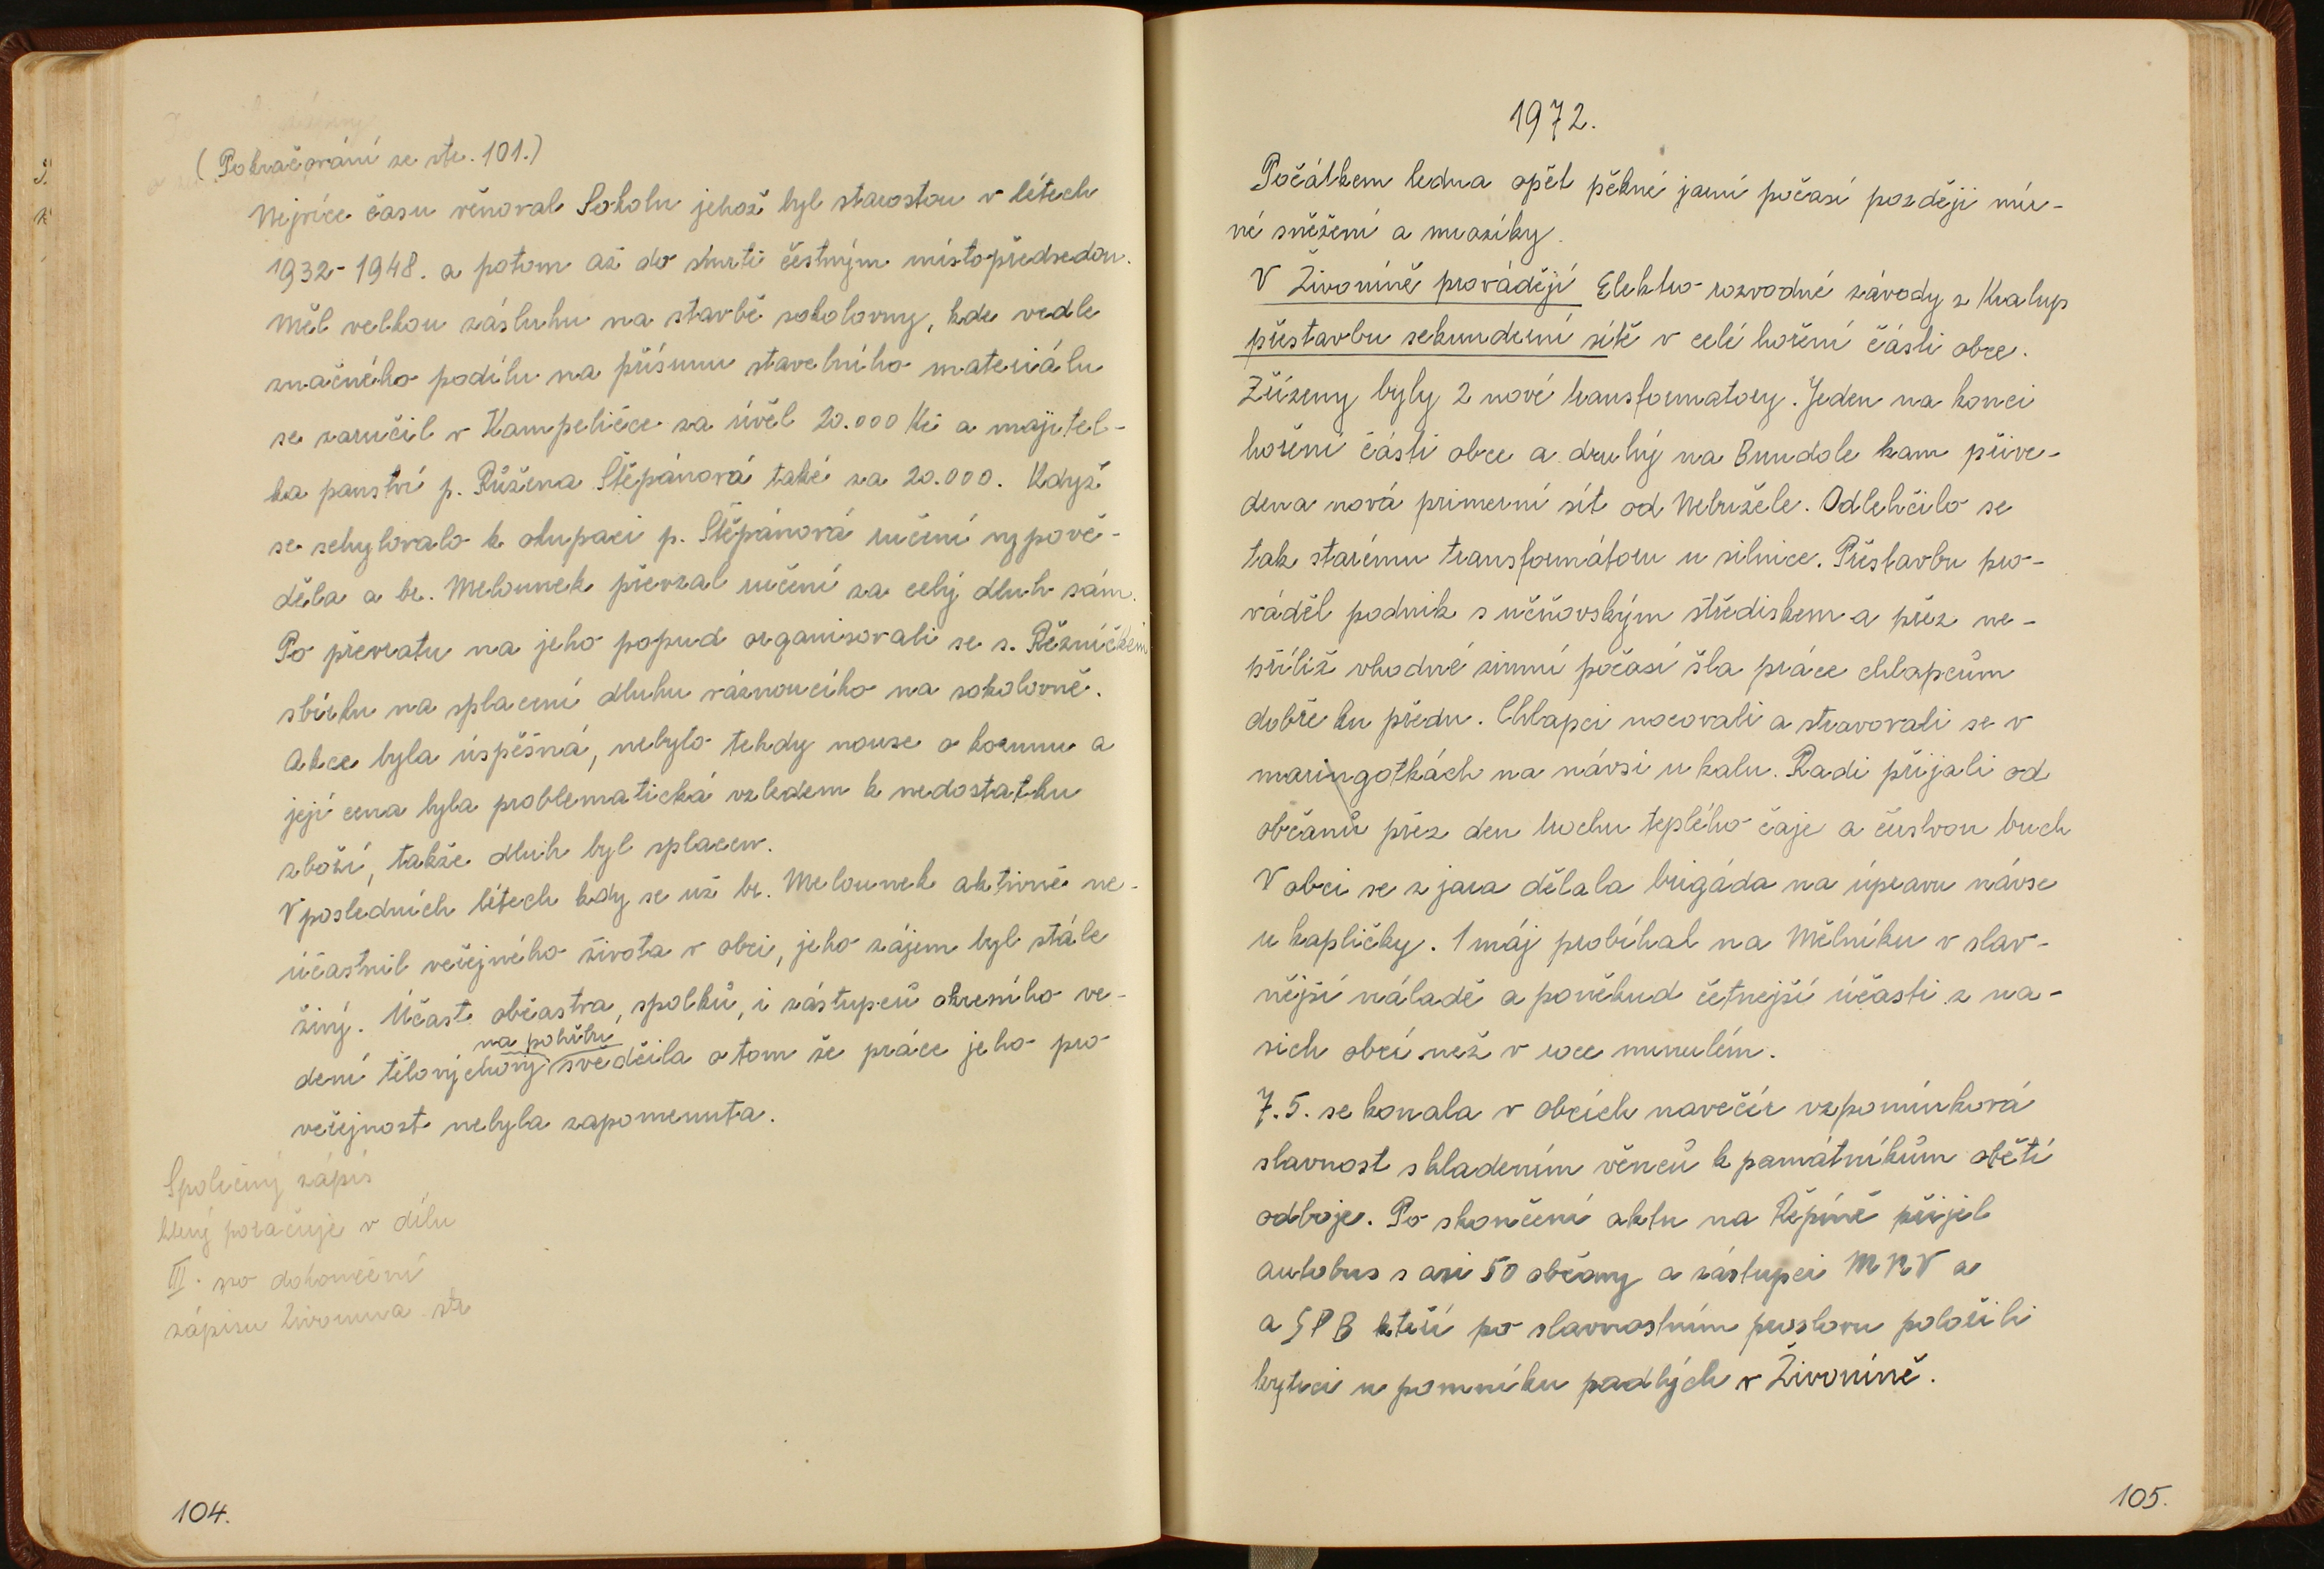 (Pokračování ze str. 101.)
Nejvíce času věnoval Sokolu jehož byl starostou v létech
1932-1948. a potom až do smrti čestným místopředsedou.
Měl velkou zásluhu na stavbě sokolovny, kde vedle
značného podílu na přísunu stavebního materiálu
se zaručil v Kampeličce za úvěl 20.000 Kč a majitel-
ka panství p. Růžena Štěpánová také za 20.000. Když
se schylovalo k okupaci p. Štěpánová ručení vypově-
děla a br. Melounek převzal ručení za celý dluh sám.
Po převratu na jeho popud organisovali se s. Řezníčkem
sbírku na splacení dluhu váznoucího na sokolovně.
Akce byla úspěšná, nebylo tehdy nouze o korunu a
její cena byla problematická vzledem k nedostatku
zboží, takže dluh byl splacen.
V posledních létech kdy se už br. Melounek aktivně ne-
účastnil veřejného života v obci, jeho zájem byl stále
živý. Účast občastva, spolků, i zástupců okresního ve-
na pohřbu
dení tělovýchovy svědčila o tom že práce jeho pro
veřejnost nebyla zapomenuta.
Společný zápis
který poračuje v dílu
III. po dokončení
zápisu Živonína str
104.
1972.
Počátkem ledna opět pěkné jarní počasí později mír-
né sněžení a mrazíky.
V Živoníně provádějí Elektro rozvodné závody z Kralup
přestavbu sekunderní sítě v celé hoření části obce.
Zřízeny byly 2 nové transformatory. Jeden na konci
hoření části obce a druhý na Bundole kam přive-
dena nová primerní sít od Nebužele. Odlehčilo se
tak starému transformátoru u silnice. Přestavbu pro-
váděl podnik s učňovským střediskem a přez ne-
příliž vhodné zimní počasí šla práce chlapcům
dobře ku předu. Chlapci nocovali a stravovali se v
maringotkách na návsi u kalu. Radi přijali od
občanů přez den trochu teplého čaje a čerstvou buch
V obci se z jara dělala brigáda na úpravu návse
u kapličky. 1 máj probíhal na Mělníku v slav-
nější náladě a poněkud četnejší účasti z na-
sich obcí než v roce minulém.
7.5. se konala v obcích navečér vzpomínková
slavnost s kladením věnců k památníkům obětí
odboje. Po skončení aktu na Řepíně přijel
autobus s asi 50 občany a zástupci MNV a
a SPB kteří po slavnostním proslovu položili
kytici u pomníku padlých v Živoníně.
105.